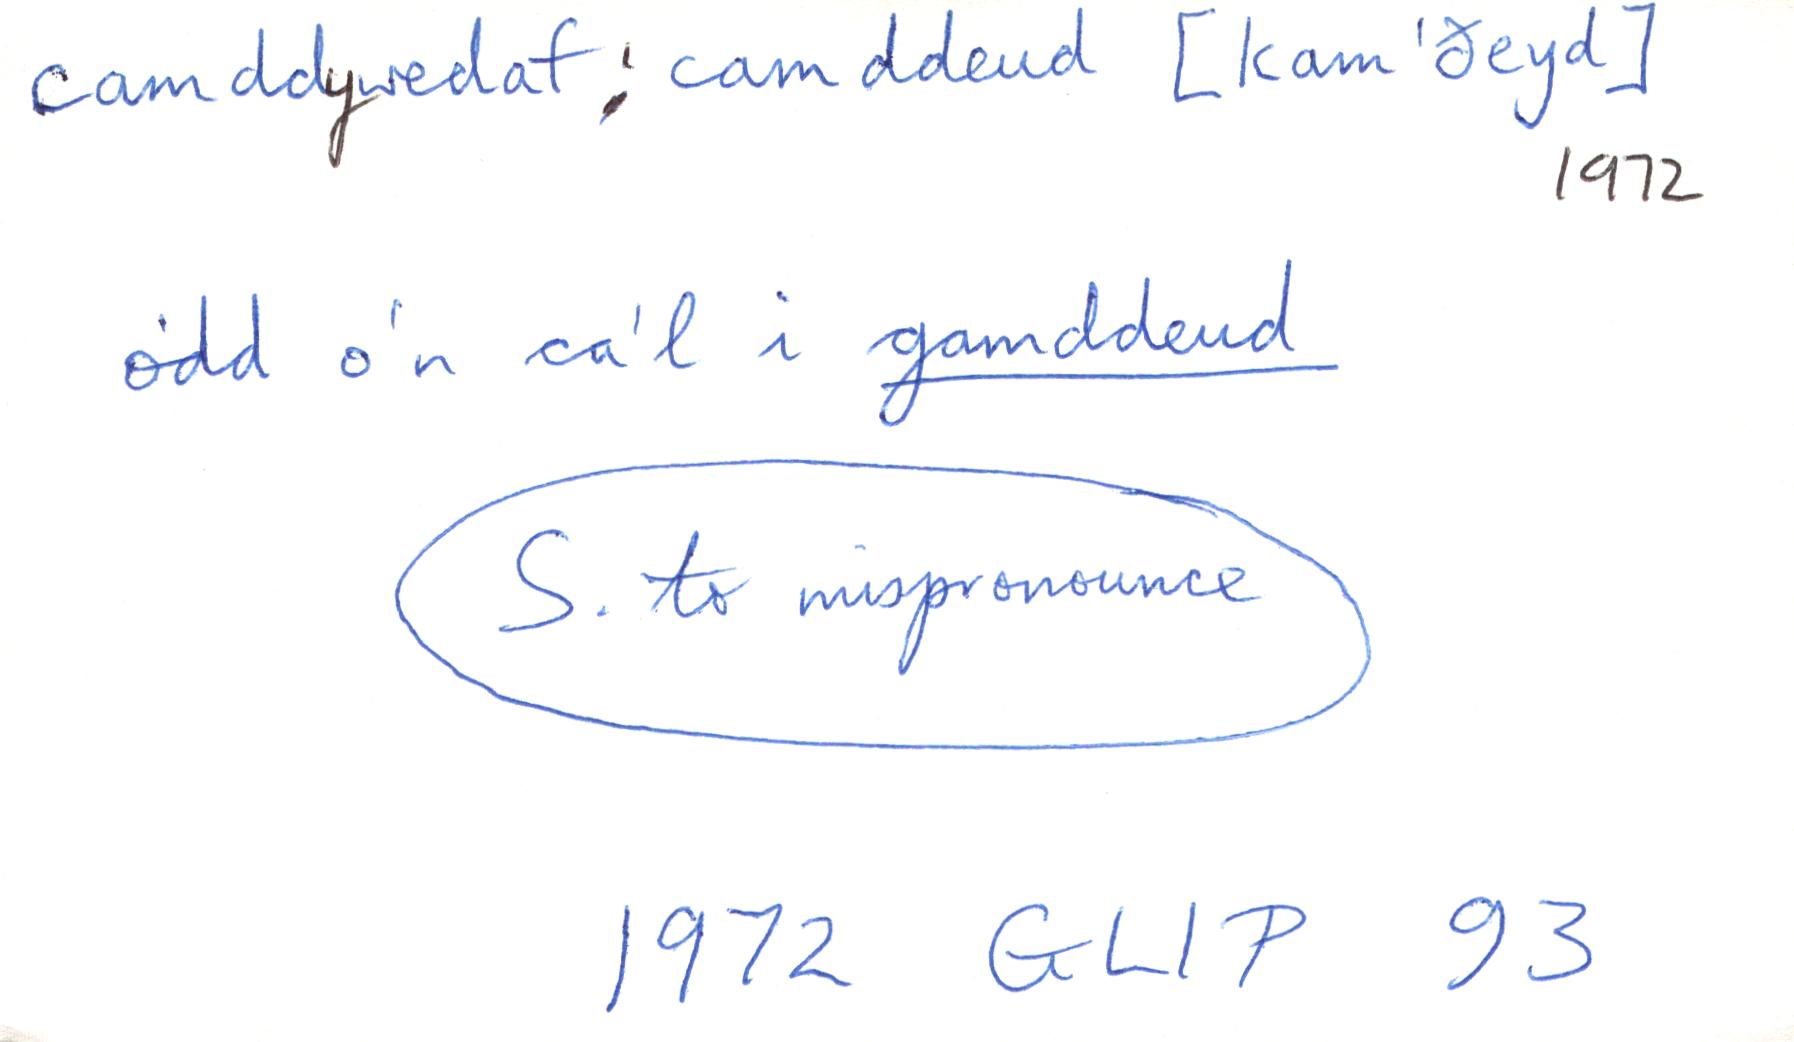 camddywedaf; camddeud [kam'ðeyd]
1972
ódd o'n ca'l i gamddeud
S. to mispronounce
1972 GLIP 93